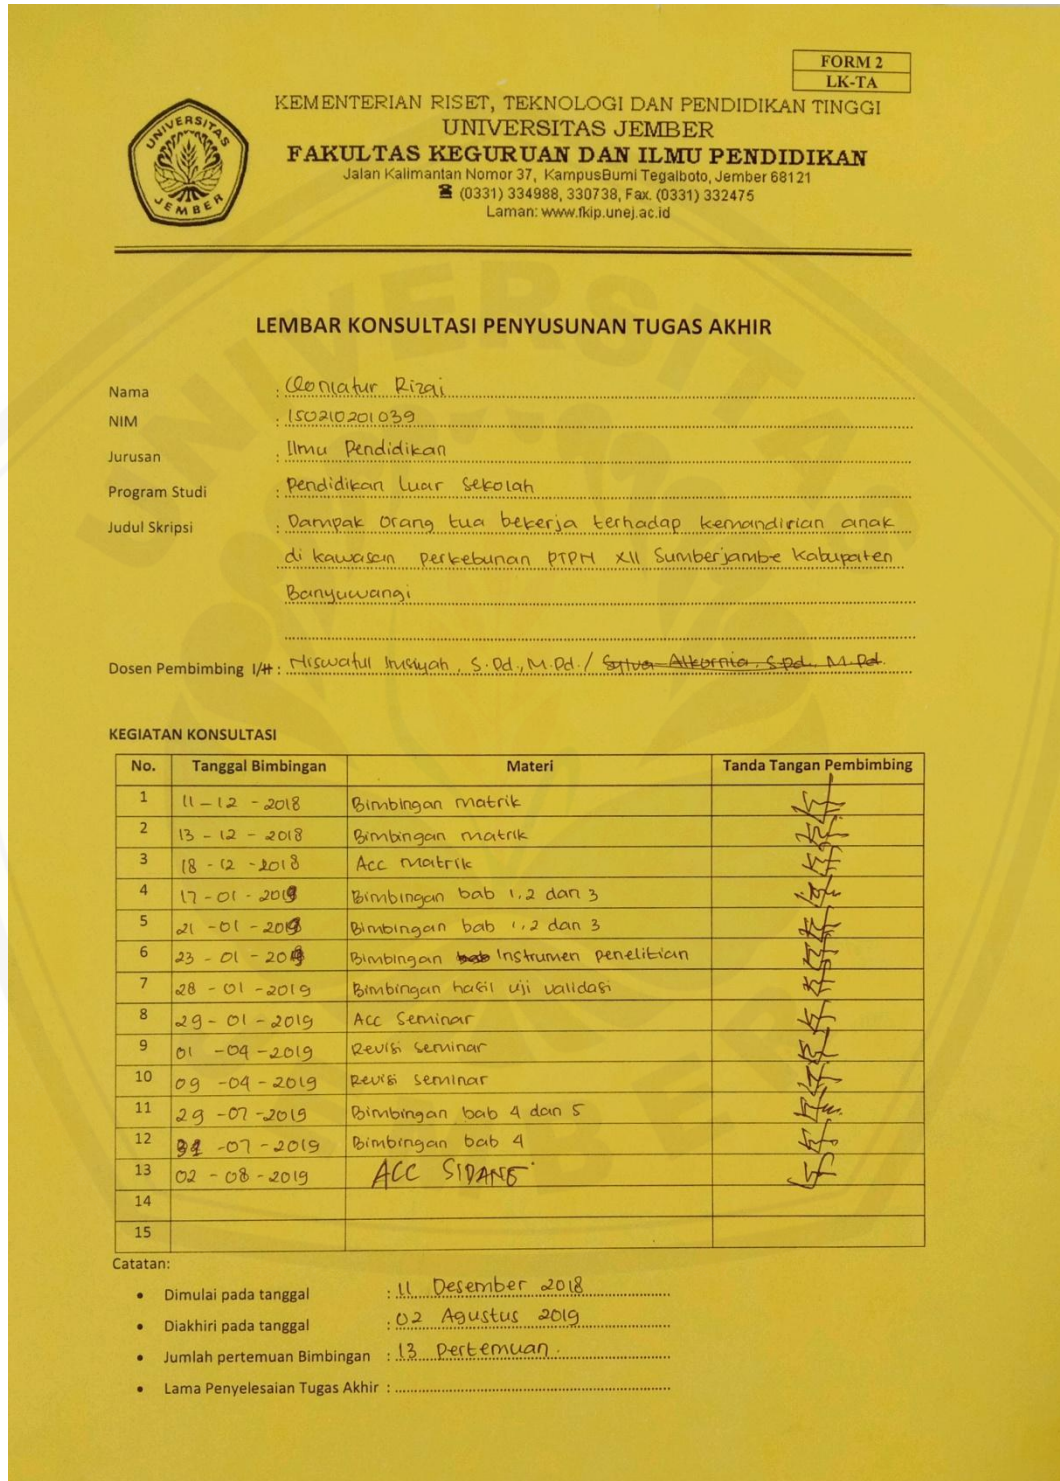 FORM 2
LK-TA
KEMENTERIAN RISET, TEKNOLOGI DAN PENDIDIKAN TINGGI
UNIVERSITAS JEMBER
FAKULTAS KEGURUAN DAN ILMU PENDIDIKAN
Jalan Kalimantan Nomor 37, KampusBumi Tegalboto, Jember 68121
☎ (0331) 334988, 330738, Fax. (0331) 332475
Laman: www.fkip.unej.ac.id
UNIVERSITAS
JEMBER
LEMBAR KONSULTASI PENYUSUNAN TUGAS AKHIR
Nama : Rizqi
NIM : 150210201039
Jurusan : Ilmu Pendidikan
Program Studi : Pendidikan Luar Sekolah
Judul Skripsi : Dampak orang tua bekerja terhadap kemandirian anak
di kawasan perkebunan PTPN XII Sumberjambe Kabupaten
Banyuwangi
Dosen Pembimbing I/II : Niswatul Imsiyah, S.Pd., M.Pd. / Sylva Alkornia, S.Pd., M.Pd.
KEGIATAN KONSULTASI
No. Tanggal Bimbingan Materi Tanda Tangan Pembimbing
1 11 - 12 - 2018 Bimbingan matrik
2 13 - 12 - 2018 Bimbingan matrik
3 18 - 12 - 2018 Acc matrik
4 17 - 01 - 2019 Bimbingan bab 1,2 dan 3
5 21 - 01 - 2019 Bimbingan bab 1,2 dan 3
6 23 - 01 - 2019 Bimbingan bab Instrumen penelitian
7 28 - 01 - 2019 Bimbingan hasil uji validasi
8 29 - 01 - 2019 Acc Seminar
9 01 - 04 - 2019 Revisi seminar
10 09 - 04 - 2019 Revisi seminar
11 29 - 07 - 2019 Bimbingan bab 4 dan 5
12 31 - 07 - 2019 Bimbingan bab 4
13 02 - 08 - 2019 ACC SIDANG
14
15
Catatan:
• Dimulai pada tanggal : 11 Desember 2018
• Diakhiri pada tanggal : 02 Agustus 2019
• Jumlah pertemuan Bimbingan : 13 Pertemuan.
• Lama Penyelesaian Tugas Akhir :